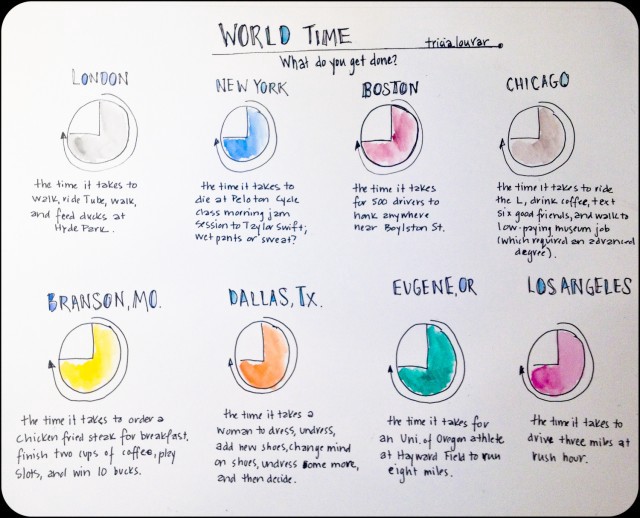 WORLD TIME
tricia.louvar.
What do you get done?
LONDON
the time it takes to
walk, ride Tube, walk,
and feed ducks at
Hyde Park.
NEW YORK
the time it takes to
die at Peloton Cycle
class morning jam
session to Taylor Swift;
wet pants or sweat?
BOSTON
the time it takes
for 500 drivers to
honk anywhere
near Boylston St.
CHICAGO
the time it takes to ride
the L, drink coffee, text
six good friends, and walk to
low-paying museum job
(which required an advanced
degree).
BRANSON, MO.
the time it takes to order a
chicken fried steak for breakfast,
finish two cups of coffee, play
slots, and win 10 bucks.
DALLAS, TX.
the time it takes a
woman to dress, undress,
add new shoes, change mind
on shoes, undress some more,
and then decide.
EUGENE, OR
the time it takes for
an Uni. of Oregon athlete
at Hayward Field to run
eight miles.
LOS ANGELES
the time it takes to
drive three miles at
rush hour.